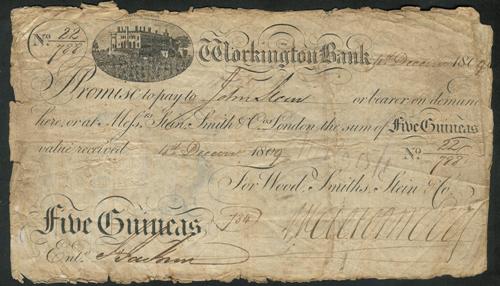 No. 22/788 Workington Bank 4th Decemr 1809
I Promise to pay to John Stein or bearer on demand
here, or at Messrs Stein, Smith & Co. London the sum of Five Guineas
value received 4th Decemr 1809 No. 22/788
For Wood, Smiths, Stein & Co.
Five Guineas
Entd.